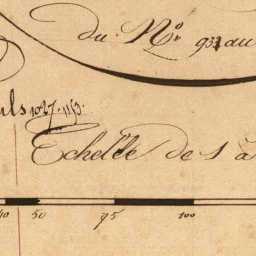 du N.º 931 au
uls 1027.1153.
Echelle de 1 à
40 50 75 100